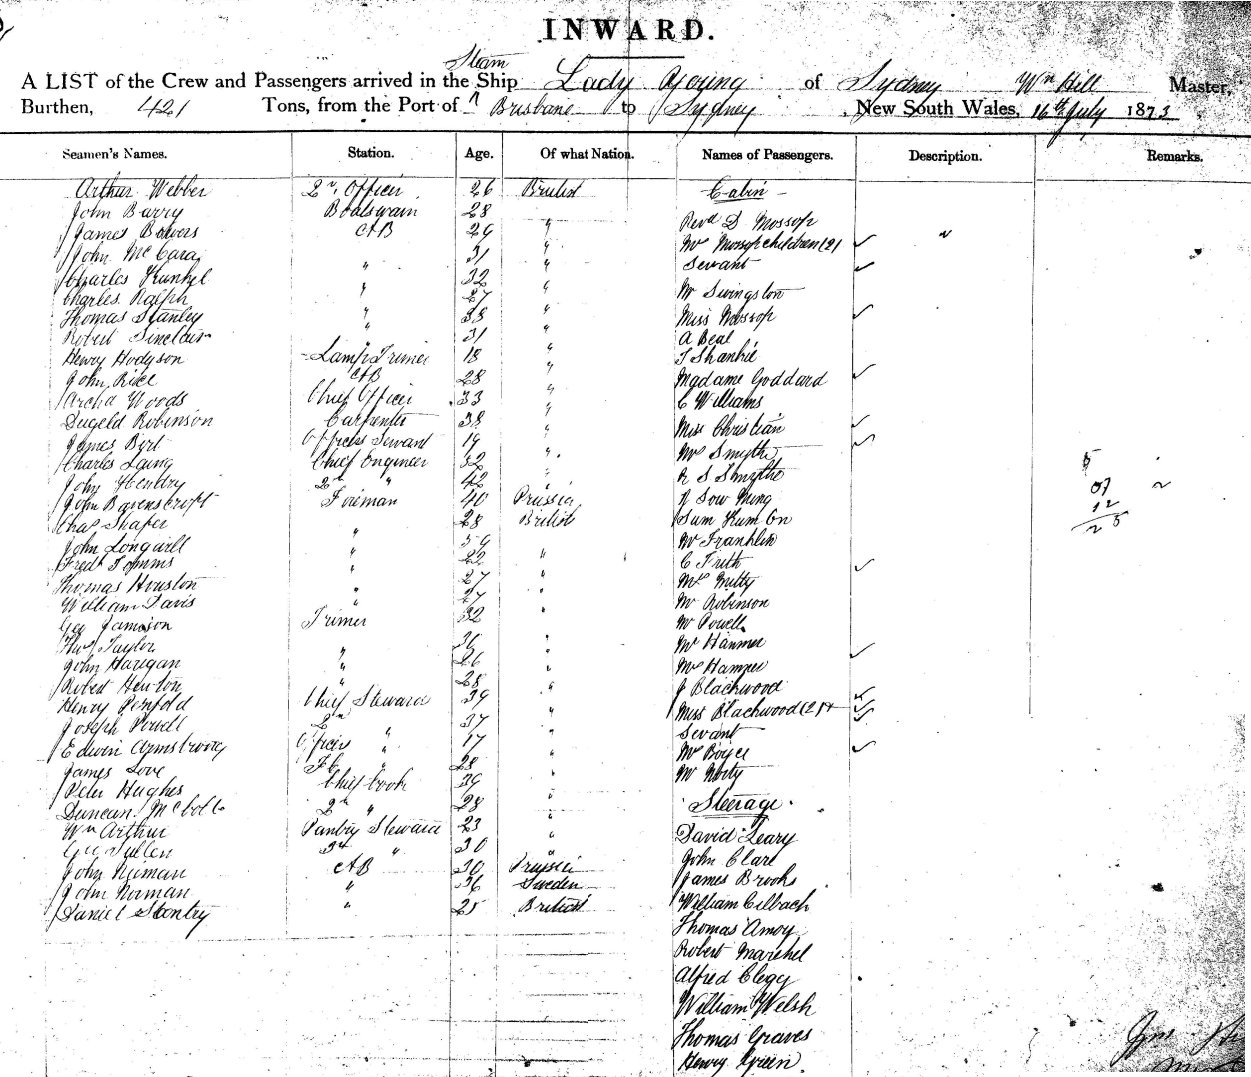 INWARD.
Steam
A LIST of the Crew and Passengers arrived in the Ship Lady Young of Sydney Wm Hill Master,
Burthen, 421 Tons, from the Port of Brisbane to Sydney, New South Wales, 16th July 1873
Seamen's Names. Station. Age. Of what Nation. Names of Passengers. Description. Remarks.
Arthur Webber 2nd Officer 26 British Cabin
John Barry Boatswain 28 " Revd D Mossop
James Bowers AB 29 " Mrs Mossop children (2)
John McCara " 31 " Servant
Charles Kunkel " 32 " Mr Livingston
Charles Ralph " 27 " Miss Mossop
Thomas Stanley " 33 " A Beal
Robert Sinclair " 31 " T Shankie
Henry Hodgson Lamp Trimer 18 " Madame Goddard
John Rice AB 28 " C Williams
Archd Woods Chief Officer 33 " Miss Christian
Dugeld Robinson Carpenter 38 " Mrs Smythe
James Byrt Officers Servant 19 " R S Smythe
Charles Laing Chief Engineer 32 "
John Hendry 2nd " 42 "
John Bavenscroft Fireman 40 Prussia Sum Kum On
Chas Shafer 28 British Mr Franklin
John Longwill " 59 C Frith
Fredk Tomms " 22 "
Thomas Houston " 27 " Mr Robinson
William Davis " 27 " Mr Powell
Geo Jamison Trimer 32 " Mr Hanmer
Thos Taylor 36 " Mrs Hanmer
John Harigan " 26 " J Blackwood
Robert Hewton " 28 " Miss Blackwood (2) +
Henry Penfold Chief Steward 39 " Servant
Joseph Powell 2nd " 37 " Mrs Boyce
Edwin Armstrong Officers " 17 "
James Love " 28 " Steerage
Peter Hughes Chief Cook 39 " David Leary
Duncan 2nd " 28 " John Clare
Wm Arthur Pantry Steward 23 " James Brooks
30 " William Cilbach
John Niman AB 30 Prussia Thomas Amoy
John Norman " 36 Sweden Robert
Daniel " 25 British Alfred Clegy
William Welsh
Thomas Graves
Henry Green